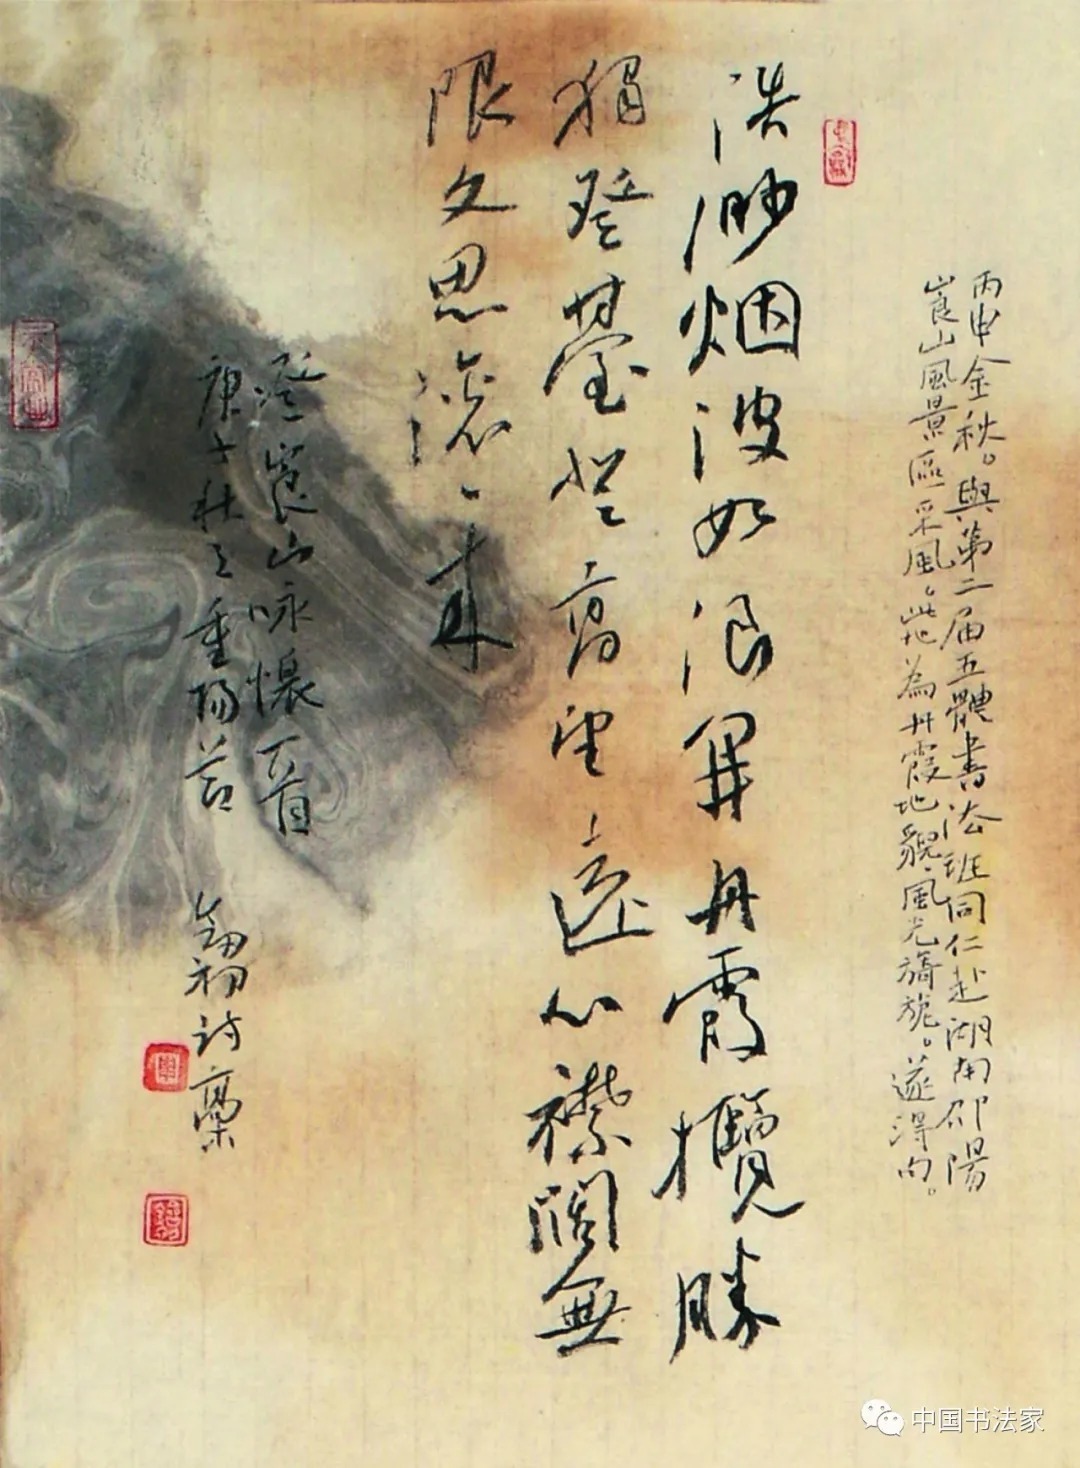 丙申金秋。與第二届五體書法班同仁赴湖南邵陽
崀山風景區采風。此地為丹霞地貌、風光旖旎。遂得句。
浩渺烟波如浪開丹霞攬勝
獨登臺登高望遠心襟闊無
限文思滚、来
登崀山咏懷一首
庚子秋之重陽 初詩稾
中国书法家